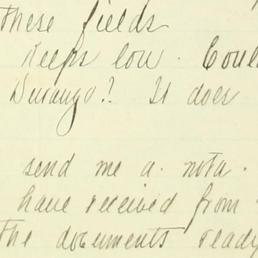 these fields
keeps low. Coul
Durango? It does
send me a nota.
have received from
the documents ready